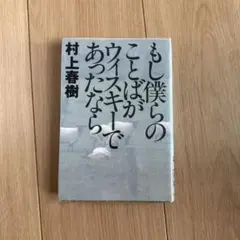 もし僕らの
ことばが
ウイスキーで
あったなら
村上春樹